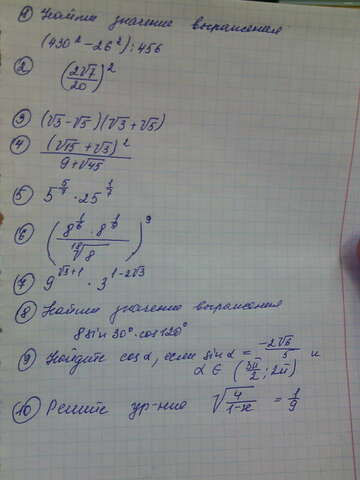 ① Найти значение выражения
(430² - 26²) : 456
② (2√7/20)²
③ (√3 - √5)(√3 + √5)
④ (√15 + √3)²/(9 + √45)
⑤ 5^(5/7) · 25^(1/7)
⑥ (8^(1/6) · 8^(1/9)/¹⁸√8)⁹
⑦ 9^(√3+1) · 3^(1-2√3)
⑧ Найти значение выражения
8 sin 30° · cos 120°
⑨ Найдите cos α, если sin α = -2√6/5 и
α ∈ (3π/2; 2π)
⑩ Решите ур-ние √(4/(1-x)) = 1/9